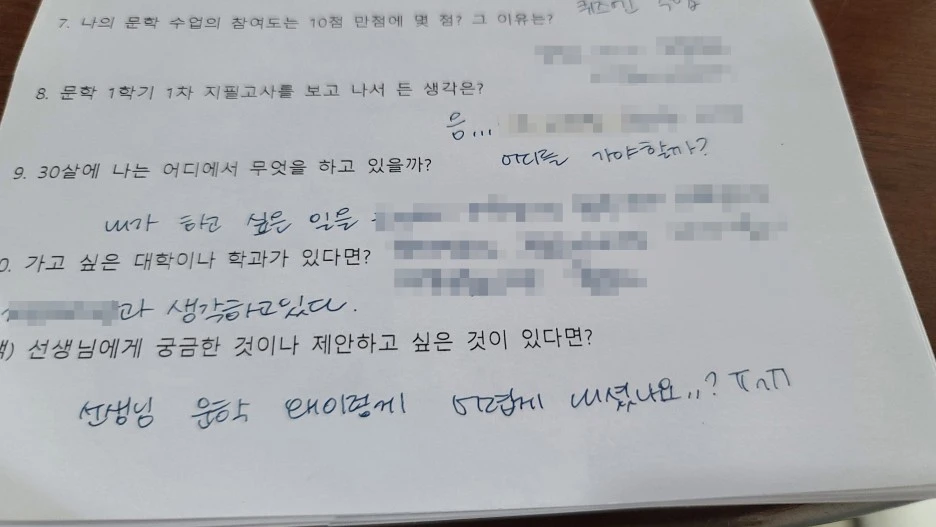 퀴즈만 수업
7. 나의 문학 수업의 참여도는 10점 만점에 몇 점? 그 이유는?
8. 문학 1학기 1차 지필고사를 보고 나서 든 생각은?
음...
어디를 가야할까?
9. 30살에 나는 어디에서 무엇을 하고 있을까?
내가 하고 싶은 일을
0. 가고 싶은 대학이나 학과가 있다면?
과 생각하고있다.
) 선생님에게 궁금한 것이나 제안하고 싶은 것이 있다면?
선생님 문학 왜이렇게 어렵게 내셨나요..? ㅠㅅㅠ